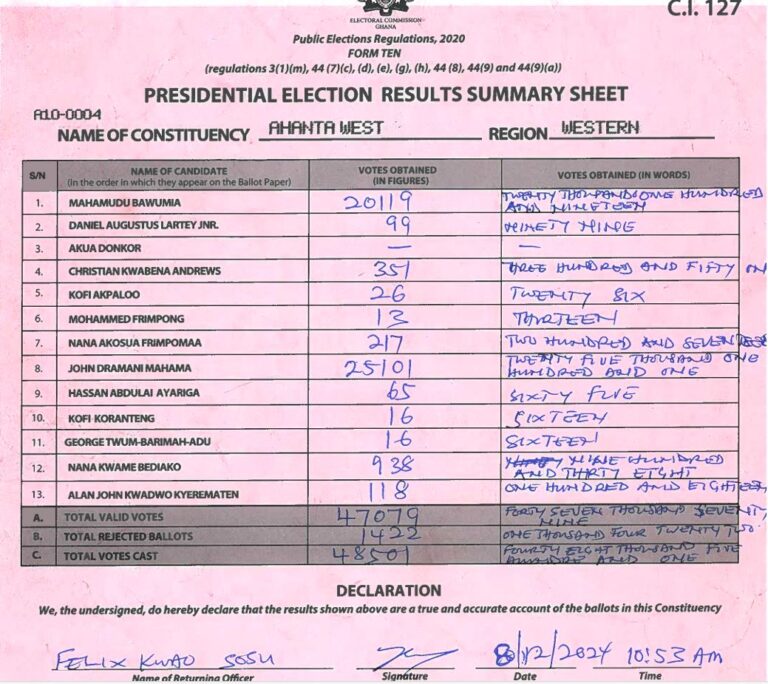 C.I. 127
ELECTORAL COMMISSION
GHANA
Public Elections Regulations, 2020
FORM TEN
(regulations 3(1)(m), 44 (7)(c), (d), (e), (g), (h), 44 (8), 44(9) and 44(9)(a))
PRESIDENTIAL ELECTION RESULTS SUMMARY SHEET
A10-0004
NAME OF CONSTITUENCY AHANTA WEST REGION WESTERN
S/N NAME OF CANDIDATE (In the order in which they appear on the Ballot Paper) VOTES OBTAINED (IN FIGURES) VOTES OBTAINED (IN WORDS)
1. MAHAMUDU BAWUMIA 20119 TWENTY THOUSAND ONE HUNDRED
AND NINETEEN
2. DANIEL AUGUSTUS LARTEY JNR. 99 NINETY NINE
3. AKUA DONKOR — —
4. CHRISTIAN KWABENA ANDREWS 351 THREE HUNDRED AND FIFTY ON
5. KOFI AKPALOO 26 TWENTY SIX
6. MOHAMMED FRIMPONG 13 THIRTEEN
7. NANA AKOSUA FRIMPOMAA 217 TWO HUNDRED AND SEVENTEE
8. JOHN DRAMANI MAHAMA 25101 TWENTY FIVE THOUSAND ONE
HUNDRED AND ONE
9. HASSAN ABDULAI AYARIGA 65 SIXTY FIVE
10. KOFI KORANTENG 16 SIXTEEN
11. GEORGE TWUM-BARIMAH-ADU 16 SIXTEEN
12. NANA KWAME BEDIAKO 938 NINE HUNDRED
AND THIRTY EIGHT
13. ALAN JOHN KWADWO KYEREMATEN 118 ONE HUNDRED AND EIGHTEEN
A. TOTAL VALID VOTES 47079 FORTY SEVEN THOUSAND SEVENTY
NINE
B. TOTAL REJECTED BALLOTS 1422 ONE THOUSAND FOUR TWENTY TWO
C. TOTAL VOTES CAST 48501 FOURTY EIGHT THOUSAND FIVE
HUNDRE AND ONE
DECLARATION
We, the undersigned, do hereby declare that the results shown above are a true and accurate account of the ballots in this Constituency
FELIX KWAO SOSU 8/12/2024 10:53 AM
Name of Returning Officer Signature Date Time